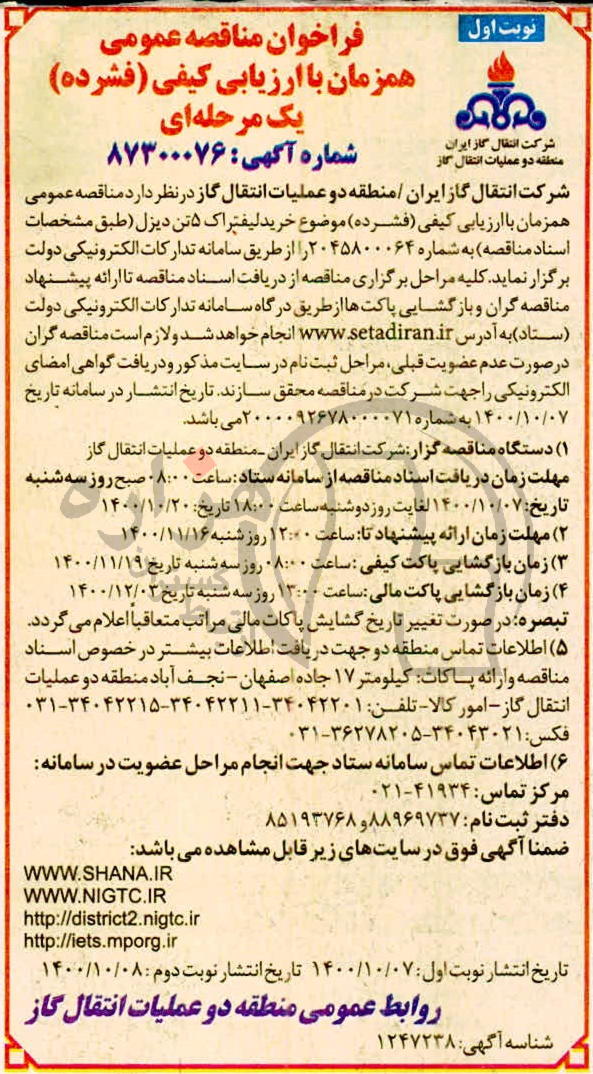 نوبت اول
فراخوان مناقصه عمومی
همزمان با ارزیابی کیفی (فشرده)
یک مرحله‌ای
شماره آگهی: ۸۷۳۰۰۰۷۶
شرکت انتقال گاز ایران
منطقه دو عملیات انتقال گاز
شرکت انتقال گاز ایران /منطقه دو عملیات انتقال گاز در نظر دارد مناقصه عمومی
همزمان با ارزیابی کیفی (فشرده) موضوع خرید لیفتراک ۵تن دیزل (طبق مشخصات
اسناد مناقصه) به شماره ۲۰۴۵۸۰۰۰۶۴ را از طریق سامانه تدارکات الکترونیکی دولت
برگزار نماید. کلیه مراحل برگزاری مناقصه از دریافت اسناد مناقصه تا ارائه پیشنهاد
مناقصه گران و بازگشایی پاکت ها از طریق درگاه سامانه تدارکات الکترونیکی دولت
(ستاد) به آدرس www.setadiran.ir انجام خواهد شد و لازم است مناقصه گران
در صورت عدم عضویت قبلی، مراحل ثبت نام در سایت مذکور و دریافت گواهی امضای
الکترونیکی را جهت شرکت در مناقصه محقق سازند. تاریخ انتشار در سامانه تاریخ
۱۴۰۰/۱۰/۰۷ به شماره ۲۰۰۰۰۹۲۶۷۸۰۰۰۰۷۱ می باشد.
۱) دستگاه مناقصه گزار: شرکت انتقال گاز ایران -منطقه دو عملیات انتقال گاز
مهلت زمان دریافت اسناد مناقصه از سامانه ستاد: ساعت ۰۸:۰۰ صبح روز سه شنبه
تاریخ: ۱۴۰۰/۱۰/۰۷ لغایت روز دوشنبه ساعت ۱۸:۰۰ تاریخ: ۱۴۰۰/۱۰/۲۰
۲) مهلت زمان ارائه پیشنهاد تا: ساعت ۱۲:۰۰ روز شنبه ۱۴۰۰/۱۱/۱۶
۳) زمان بازگشایی پاکت کیفی : ساعت ۰۸:۰۰ روز سه شنبه تاریخ ۱۴۰۰/۱۱/۱۹
۴) زمان بازگشایی پاکت مالی: ساعت ۱۳:۰۰ روز سه شنبه تاریخ ۱۴۰۰/۱۲/۰۳
تبصره: در صورت تغییر تاریخ گشایش پاکات مالی مراتب متعاقباً اعلام می گردد.
۵) اطلاعات تماس منطقه دو جهت دریافت اطلاعات بیشتر در خصوص اسناد
مناقصه و ارائه پاکات: کیلومتر ۱۷ جاده اصفهان - نجف آباد منطقه دو عملیات
انتقال گاز - امور کالا- تلفن: ۳۴۰۴۲۲۰۱-۳۴۰۴۲۲۱۱-۳۴۰۴۲۲۱۵-۰۳۱
فکس: ۳۴۰۴۳۰۲۱-۳۶۲۷۸۲۰۵-۰۳۱
۶) اطلاعات تماس سامانه ستاد جهت انجام مراحل عضویت در سامانه:
مرکز تماس: ۴۱۹۳۴-۰۲۱
دفتر ثبت نام: ۸۸۹۶۹۷۳۷ و ۸۵۱۹۳۷۶۸
ضمنا آگهی فوق در سایت های زیر قابل مشاهده می باشد:
WWW.SHANA.IR
WWW.NIGTC.IR
http://district2.nigtc.ir
http://iets.mporg.ir
تاریخ انتشار نوبت اول: ۱۴۰۰/۱۰/۰۷ تاریخ انتشار نوبت دوم: ۱۴۰۰/۱۰/۰۸
روابط عمومی منطقه دو عملیات انتقال گاز
شناسه آگهی: ۱۲۴۷۲۳۸